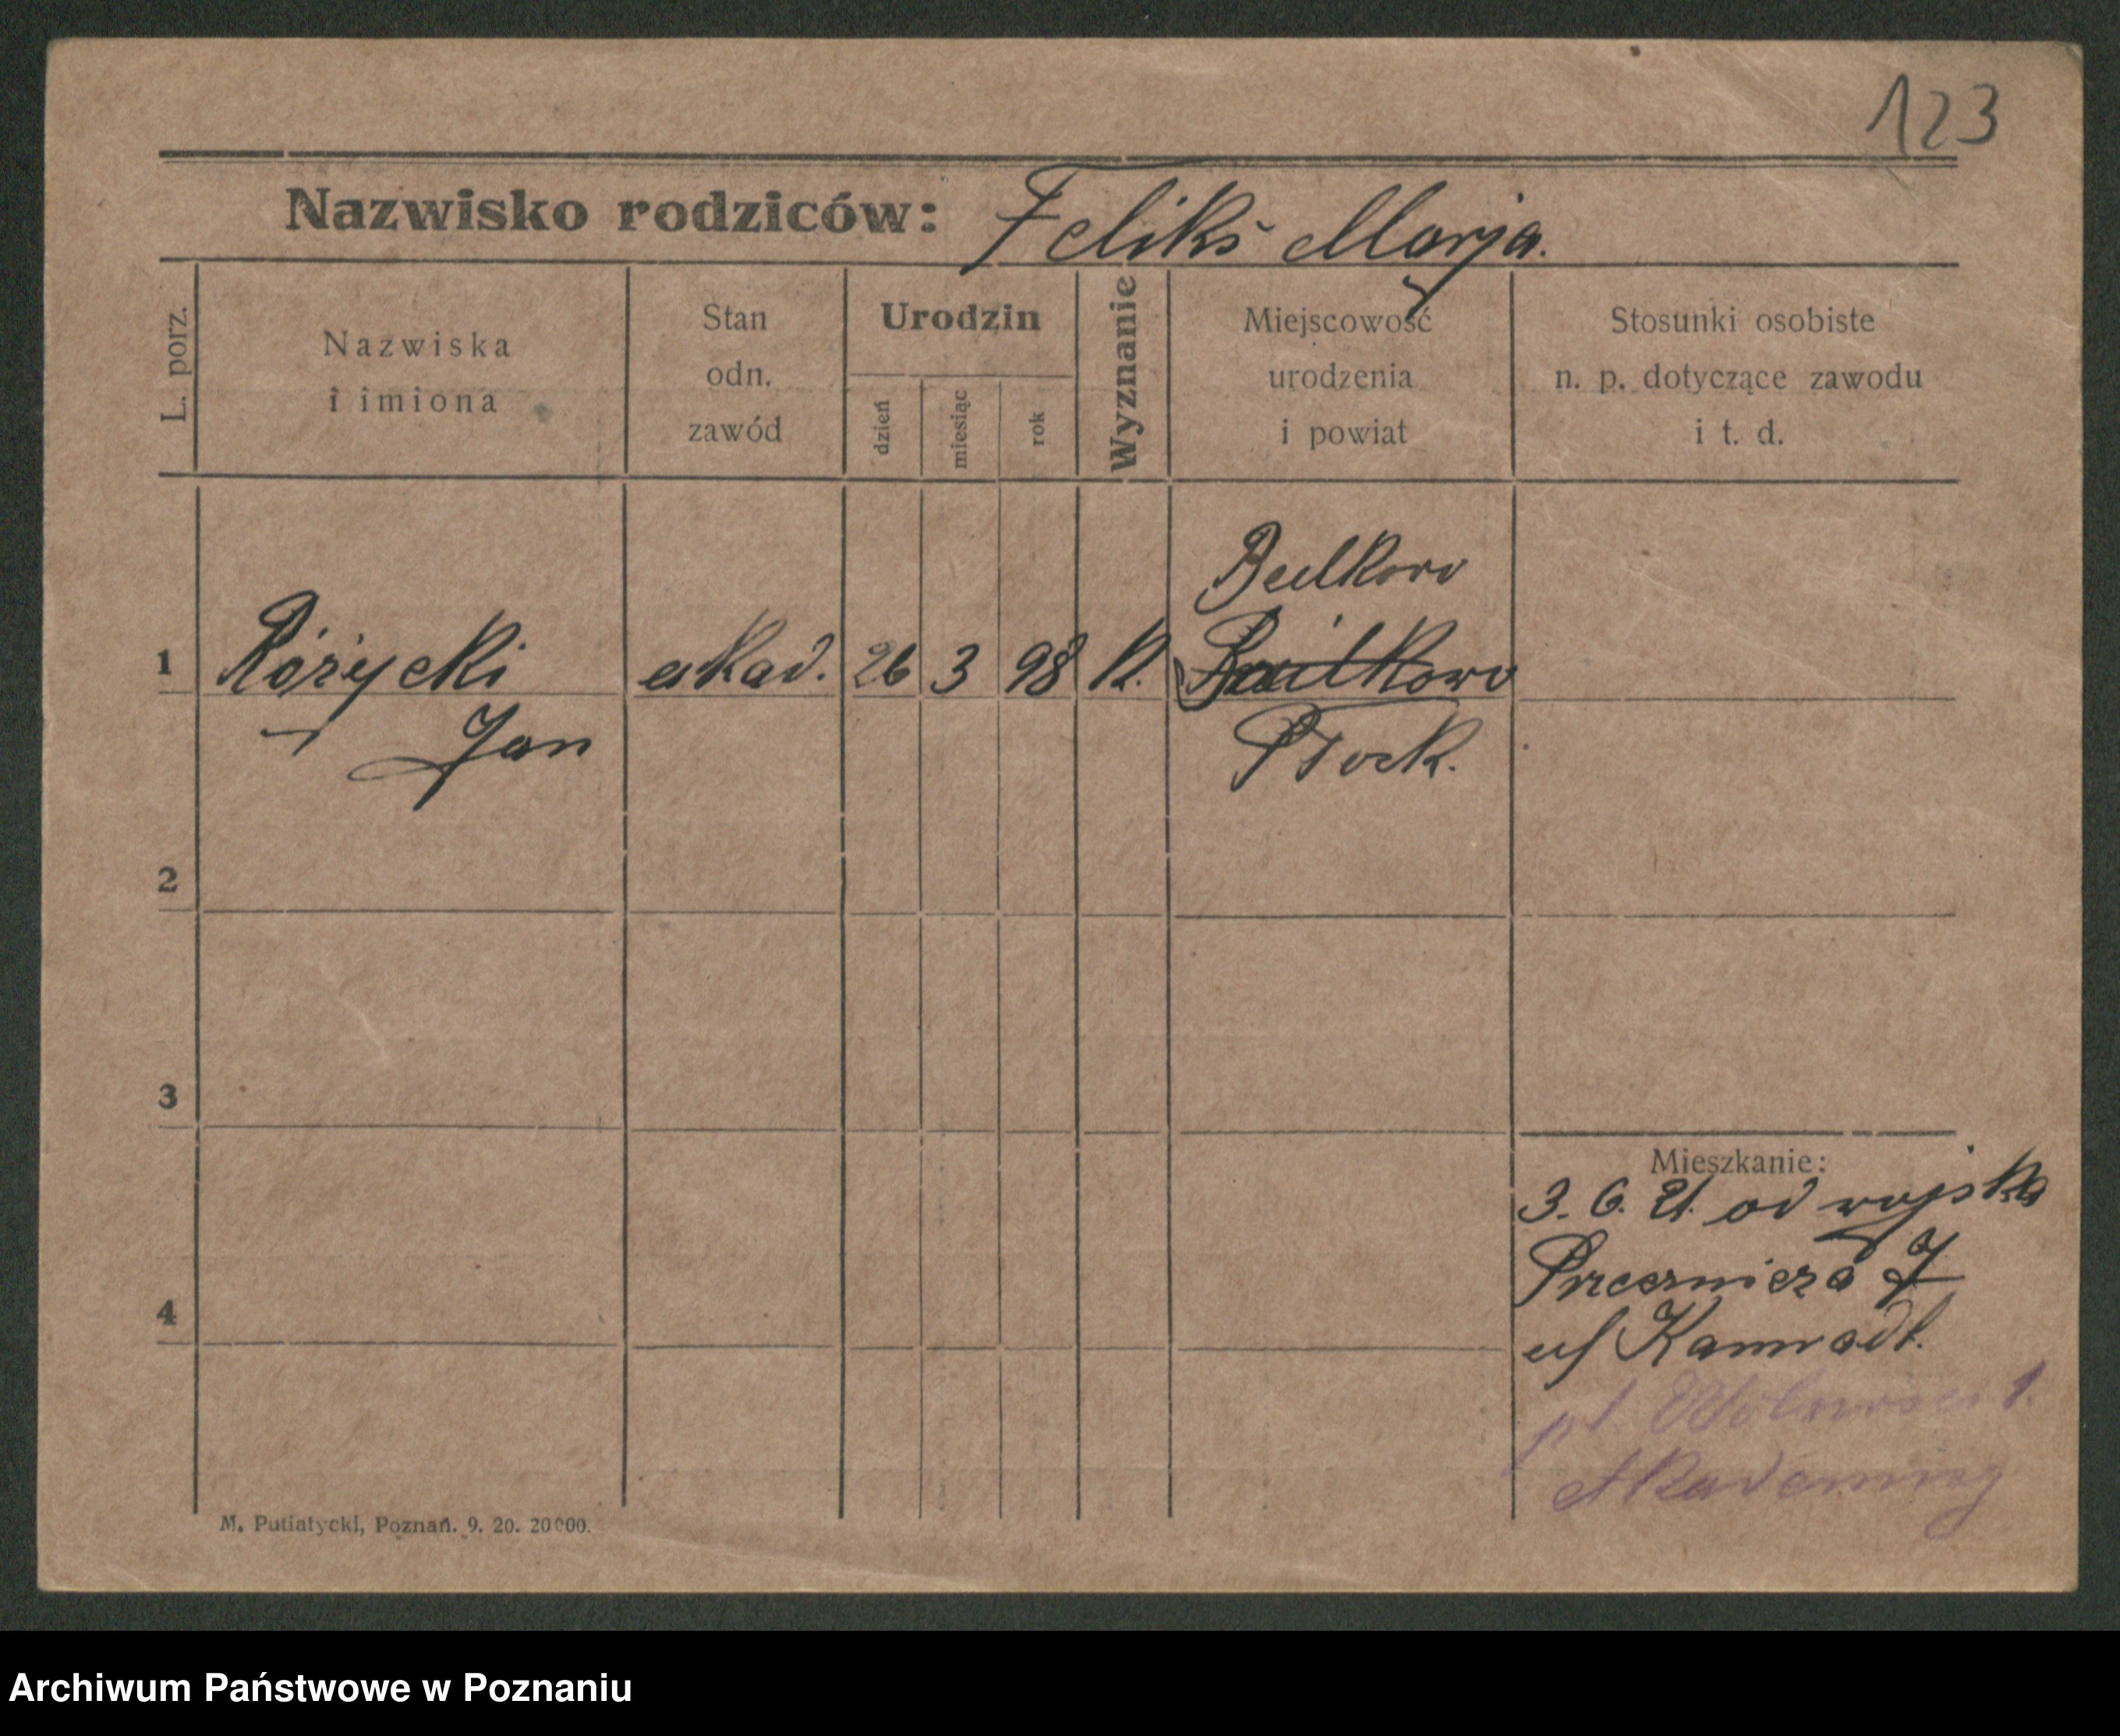 123
Nazwisko rodziców: Feliks Marja.
L. porz.
Nazwiska
i imiona
Stan
odn.
zawód
Urodzin
dzień
miesiąc
rok
Wyznanie
Miejscowość
urodzenia
i powiat
Stosunki osobiste
n. p. dotyczące zawodu
i t. d.
Bulkowo
1 Różycki akad. 26 3 98 k.
Jan Płock.
2
3
4
Mieszkanie:
3. 6. 21. od wojska
7
u/
pl. 1.
M. Putiatycki, Poznań. 9. 20. 20000.
Archiwum Państwowe w Poznaniu